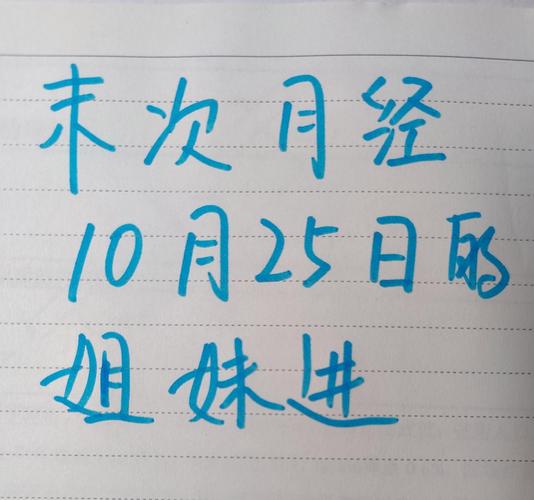 末次月经
10月25日的
姐妹进